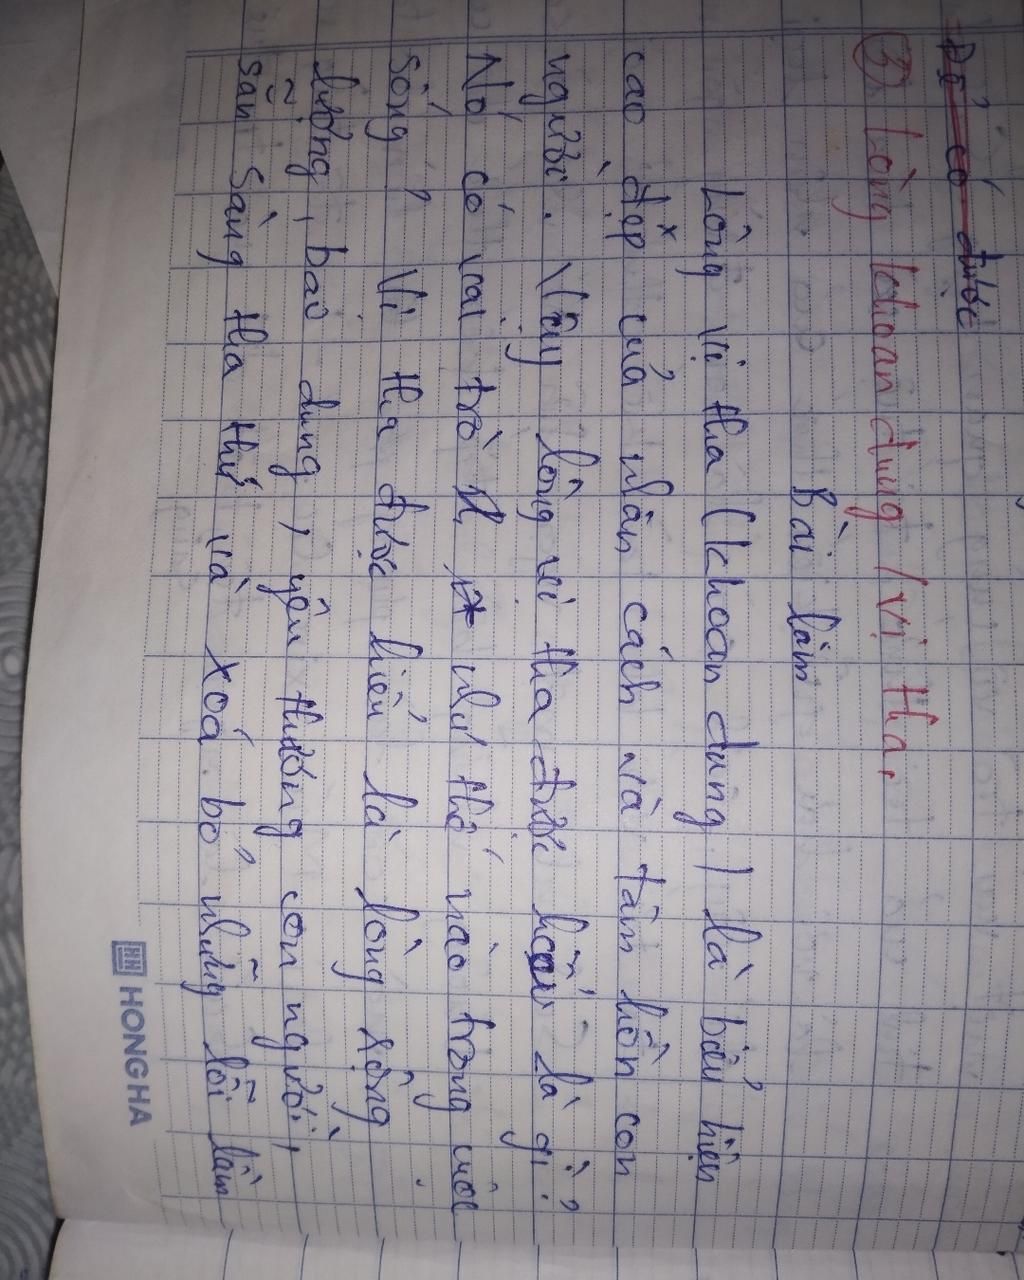 Để có được
③ Lòng khoan dung / vị tha,
Bài làm
Lòng vị tha (khoan dung) là biểu hiện
cao đẹp của nhân cách và tâm hồn con
người. Vậy lòng vị tha được hiểu là gì?
Nó có vai trò như thế nào trong cuộc
sống? Vị tha được hiểu là lòng rộng
lượng, bao dung, yêu thương con người,
sẵn sàng tha thứ và xoá bỏ những lỗi lầm
HONG HA